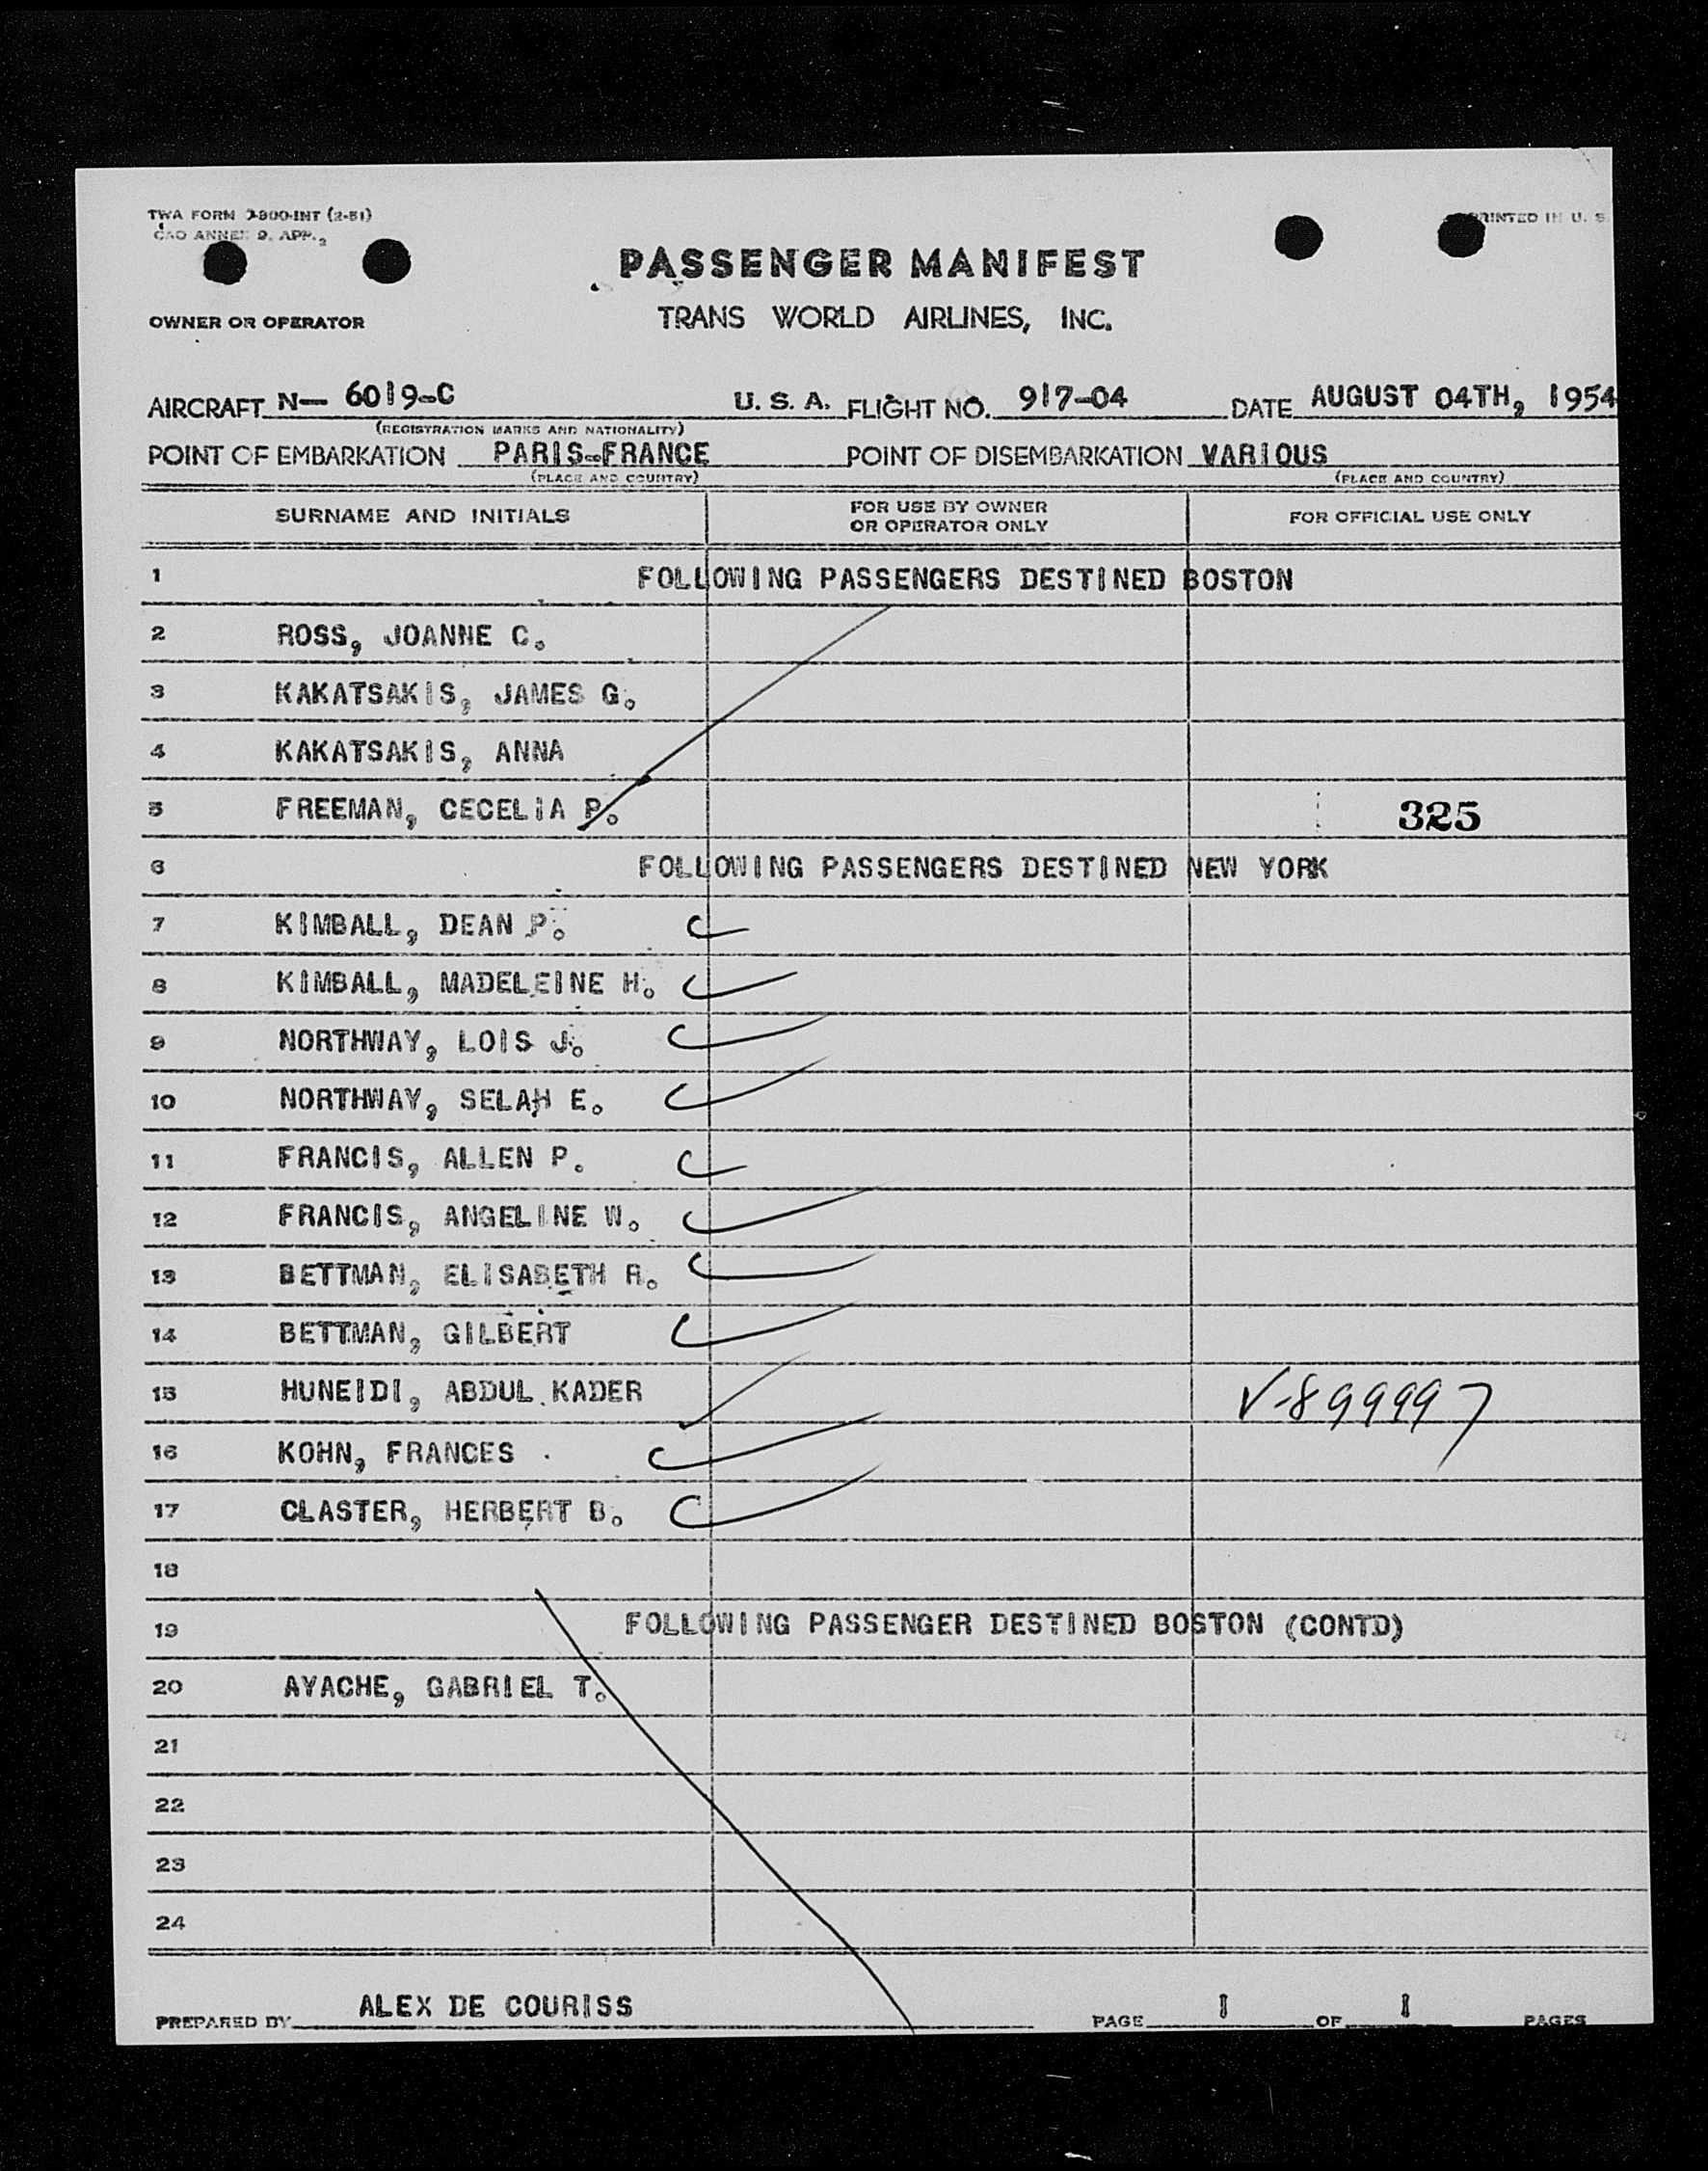 TWA FORM 2-900-INT (2-51)
PRINTED IN U. S.
PASSENGER MANIFEST
OWNER OR OPERATOR TRANS WORLD AIRLINES, INC.
AIRCRAFT N— 6019-C U. S. A. FLIGHT NO. 917-04 DATE AUGUST 04TH, 1954
(REGISTRATION MARKS AND NATIONALITY)
POINT OF EMBARKATION PARIS-FRANCE POINT OF DISEMBARKATION VARIOUS
(PLACE AND COUNTRY) (PLACE AND COUNTRY)
SURNAME AND INITIALS FOR USE BY OWNER OR OPERATOR ONLY FOR OFFICIAL USE ONLY
1 FOLLOWING PASSENGERS DESTINED BOSTON
2 ROSS, JOANNE C.
3 KAKATSAKIS, JAMES G.
4 KAKATSAKIS, ANNA
5 FREEMAN, CECELIA P. 325
6 FOLLOWING PASSENGERS DESTINED NEW YORK
7 KIMBALL, DEAN P.
8 KIMBALL, MADELEINE H.
9 NORTHWAY, LOIS J.
10 NORTHWAY, SELAH E.
11 FRANCIS, ALLEN P.
12 FRANCIS, ANGELINE W.
13 BETTMAN, ELISABETH R.
14 BETTMAN, GILBERT
15 HUNEIDI, ABDUL KADER V-899997
16 KOHN, FRANCES
17 CLASTER, HERBERT B.
18
19 FOLLOWING PASSENGER DESTINED BOSTON (CONTD)
20 AYACHE, GABRIEL T.
21
22
23
24
PREPARED BY ALEX DE COURISS PAGE 1 OF 1 PAGES